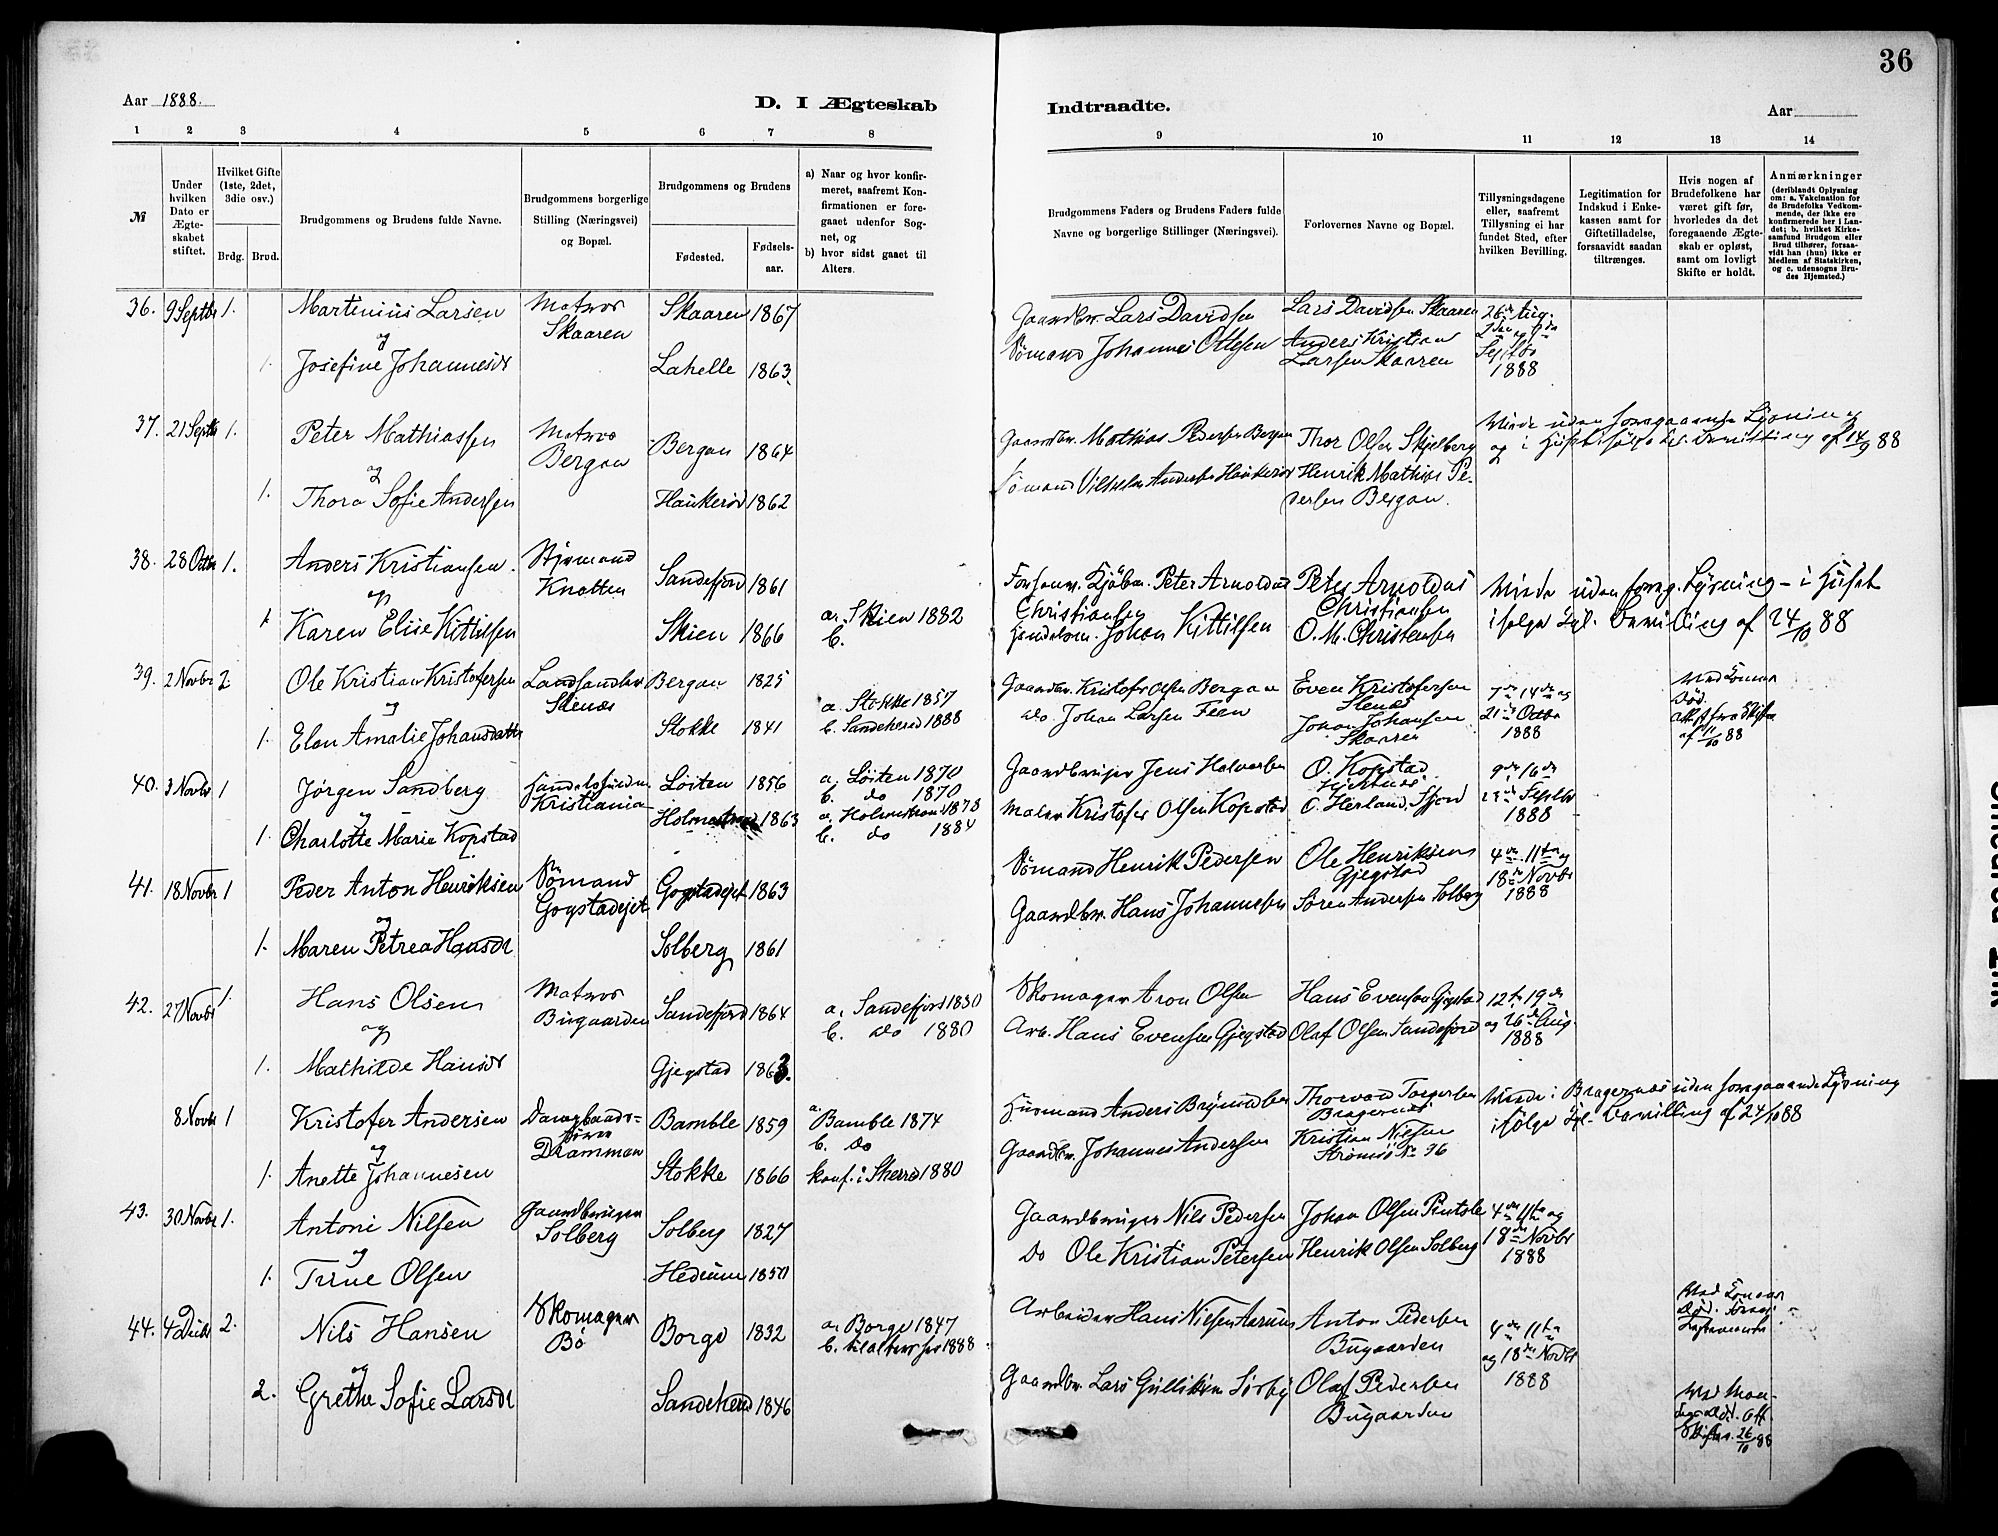 36
Aar 1888.
D. I Ægteskab
Indtraadte.
Aar
1 2 3 4 5 6 7 8 9 10 11 12 13 14
№
Under hvilken Dato er Ægteskabet stiftet.
Hvilket Gifte (1ste, 2det, 3die osv.)
Brdg. Brud.
Brudgommens og Brudens fulde Navne.
Brudgommens borgerlige Stilling (Næringsvei) og Bopæl.
Brudgommens og Brudens
Fødested.
Fødselsaar.
a) Naar og hvor konfirmeret, saafremt Konfirmationen er foregaaet udenfor Sognet, og
b) hvor sidst gaaet til Alters.
Brudgommens Faders og Brudens Faders fulde Navne og borgerlige Stillinger (Næringsvei).
Forlovernes Navne og Bopæl.
Tillysningsdagene eller, saafremt Tillysning ei har fundet Sted, efter hvilken Bevilling.
Legitimation for Indskud i Enkekassen samt for Giftetilladelse, forsaavidt saadan tiltrænges.
Hvis nogen af Brudefolkene har været gift før, hvorledes da det foregaaende Ægteskab er opløst, samt om lovligt Skifte er holdt.
Anmærkninger (deriblandt Oplysning om: a. Vakcination for de Brudefolks Vedkommende, der ikke ere konfirmerede her i Landet; b. hvilket Kirkesamfund Brudgom eller Brud tilhører, forsaavidt han (hun) ikke er Medlem af Statskirken, og c. udensogns Brudes Hjemsted.)
36. 9 Septbr 1. Martinius Larsen Matros Skaaren Skaaren 1867 Gaardbr. Lars Davidsen Lars Davidsen Skaaren 26de Aug.
og
1. Josefine Johannesdr Lahelle 1863. Sømand Johannes Ottesen Anders Kristian Larsen Skaaren Septbr 1888
37. 21 Septbr 1. Peter Mathiassen Matros Bergan Bergan 1864 Gaardbr. Mathias Pedersen Bergan Thor Olsen Skjelberg Viede uden foregaaende Lysning og i Huset ifølge kgl. Bevilling af 14/9 88
og
1. Thora Sofie Andersen Haukerød 1862 Sømand Vilhelm Andersen Haukerød Henrik Mathias Pedersen Bergan.
38. 28 Octbr 1. Anders Kristiansen Styrmand Knatten Sandefjord 1861 Forhenv. Kjøbm. Peter Arnoldus Christiansen Peter Arnoldus Christiansen Viede uden foreg. Lysning - i Huset
og
1. Karen Elise Kittilsen Skien 1866 a. Skien 1882 b. Johan Kittilsen O. M. Christensen ifølge kgl. Bevilling af 24/10 88
39. 2 Novbr 2 Ole Kristian Kristofersen Stenæs Bergan 1825 Gaardbr. Kristofer Olsen Bergan Even Kristofersen Stenæs 7de 14de og
og
1. Elen Amalie Johansdatter Stokke 1841 a. Stokke 1857 b. Sandeherred 1888 Do. Johan Larsen Feen Johan Johansen Skaaren 21de Octbr 1888 Ved Konens Død. Attest fra Skifter. af 11/10 88
40. 3 Novbr 1 Jørgen Sandberg Kristiania Løiten 1856 a. Løiten 1870 b. do 1870 Gaardbruger Jens Halvorsen O. Kopstad Hjertnes 9de 16de
og
1. Charlotte Marie Kopstad Holmestrand 1863 a. Holmestrand 1878 b. do 1884 Maler Kristofer Olsen Kopstad 23de Septbr 1888
41. 18 Novbr 1 Peder Anton Henriksen Sømand Gogstadejet Gogstadejet 1863 Sømand Henrik Pedersen Ole Henriksen Gjegstad 4de 11te og
og
1. Maren Petrea Hansdr Solberg 1861 Gaardbr. Hans Johannesen Søren Andersen Solberg 18de Novbr 1888
42. 27 Novbr 1. Hans Olsen Matros Bugaarden Sandefjord 1864 a. Sandefjord 1880 b. do 1880 Skomager Aron Olsen Hans Evensen Gjegstad 12te 19de
og
1. Mathilde Hansdr Gjegstad 1863. Arb. Hans Evensen Gjegstad Olaf Olsen Sandefjord og 26de Aug. 1888
8 Novbr 1 Kristofer Andersen Drammen Bamble 1859 a. Bamble 1874 b. do Husmand Anders Brynildsen Thorvard Torgersen Bragernæs Viede i Bragernæs uden foregaaende Lysning
og
1. Anette Johannesen Stokke 1866 konf. i Sherred 1880 Gaardbr. Johannes Andersen Kristian Nielsen Strømsø No 96 ifølge kgl. Bevilling af 24/10 88
43. 30 Novbr 1. Antoni Nilsen Gaardbruger Solberg Solberg 1827 Gaardbruger Nils Pedersen Johan Olsen 4de 11te og
og
1. Trine Olsen Hedrum 1850 Do Ole Kristian Petersen Henrik Olsen Solberg 18de Novbr 1888
44. 4 Decbr 2. Nils Hansen Skomager Bø Borge 1832 a. Borge 1847 b. til alters her 1888 Arbeider Hans Nielsen Anton Pedersen Bugaarden 4de 11te Ved Konens Død.
og
2. Grethe Sofie Larsdr Sandeherred 1846 Gaardbr. Lars Gulliksen Sørby Olaf Pedersen Bugaarden og 18de Novbr 1888 Ved Mandens Død. Att. Skifter. 26/10 88